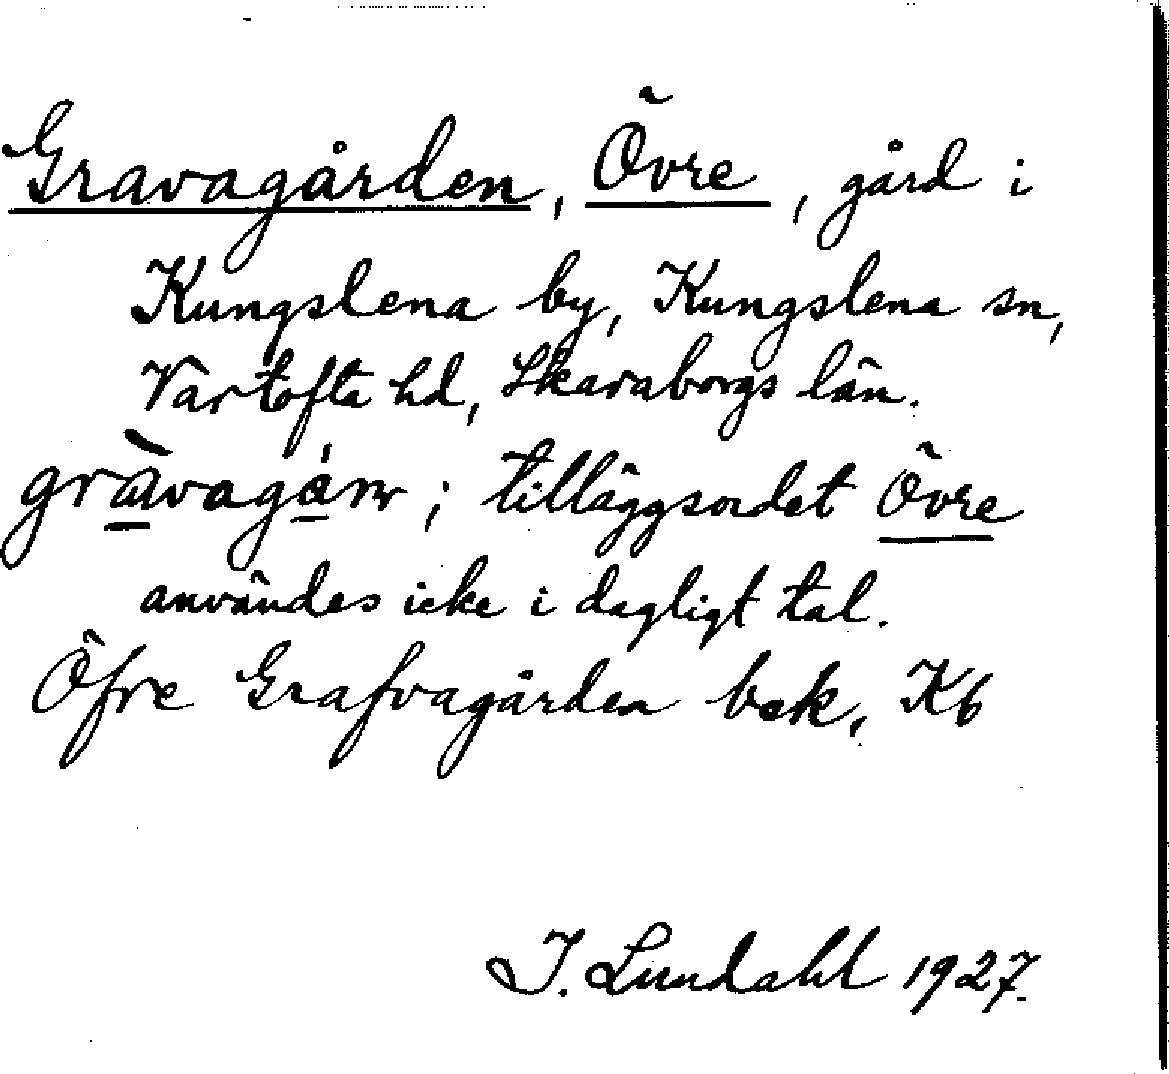 Gravagården, Övre, gård i
Kungslena by, Kungslena sn,
Vartofta hd, Skaraborgs län.
; tilläggsordet Övre
användes icke i dagligt tal.
Öfre Grafvagården bek, Kb
I. Lundahl 1927.